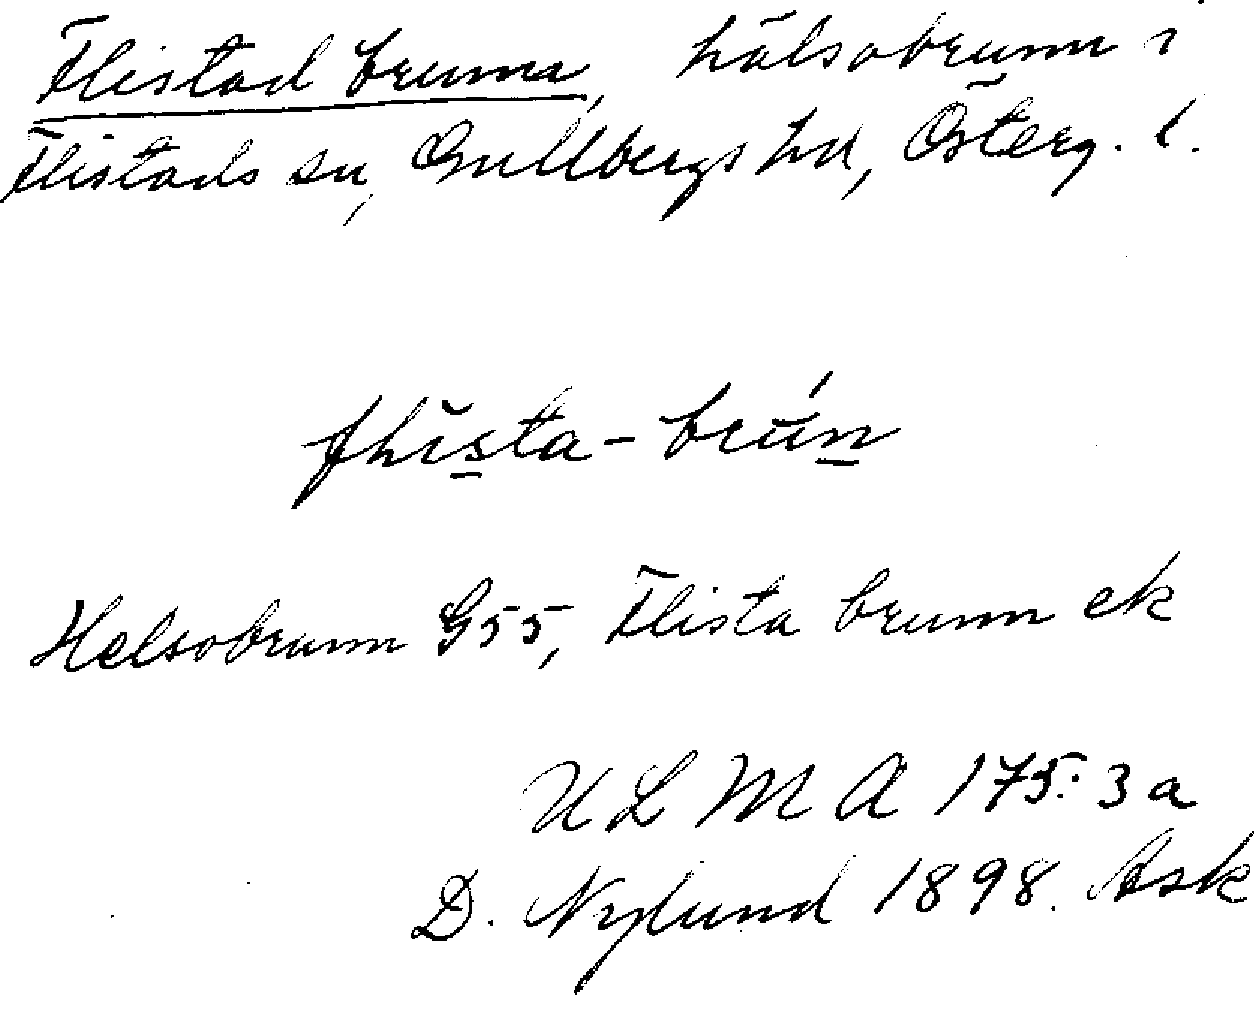 Flistad brunn, hälsobrunn i
Flistads sn, Gullbergs hd, Österg. l.
flista - brún
Helsobrunn G55, Flista brunn ek
ULMA 175:3a
D. Nylund 1898. Ask